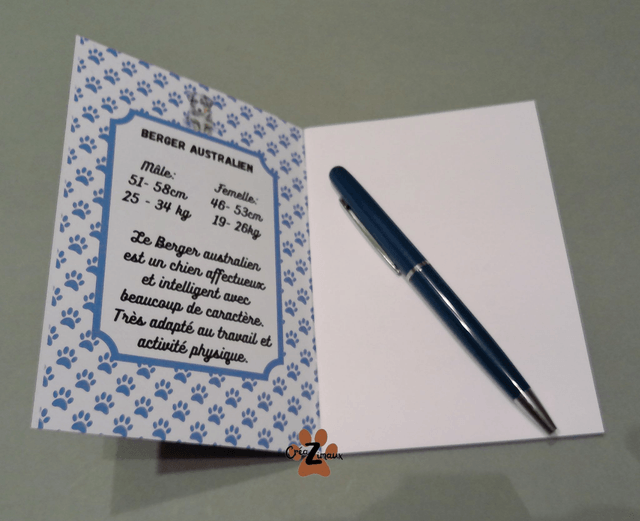 BERGER AUSTRALIEN
Mâle:
51- 58cm
25 - 34 kg
Femelle:
46- 53cm
19- 26kg
Le Berger australien
est un chien affectueux
et intelligent avec
beaucoup de caractère.
Très adapté au travail et
activité physique.
CréaZ'imaux